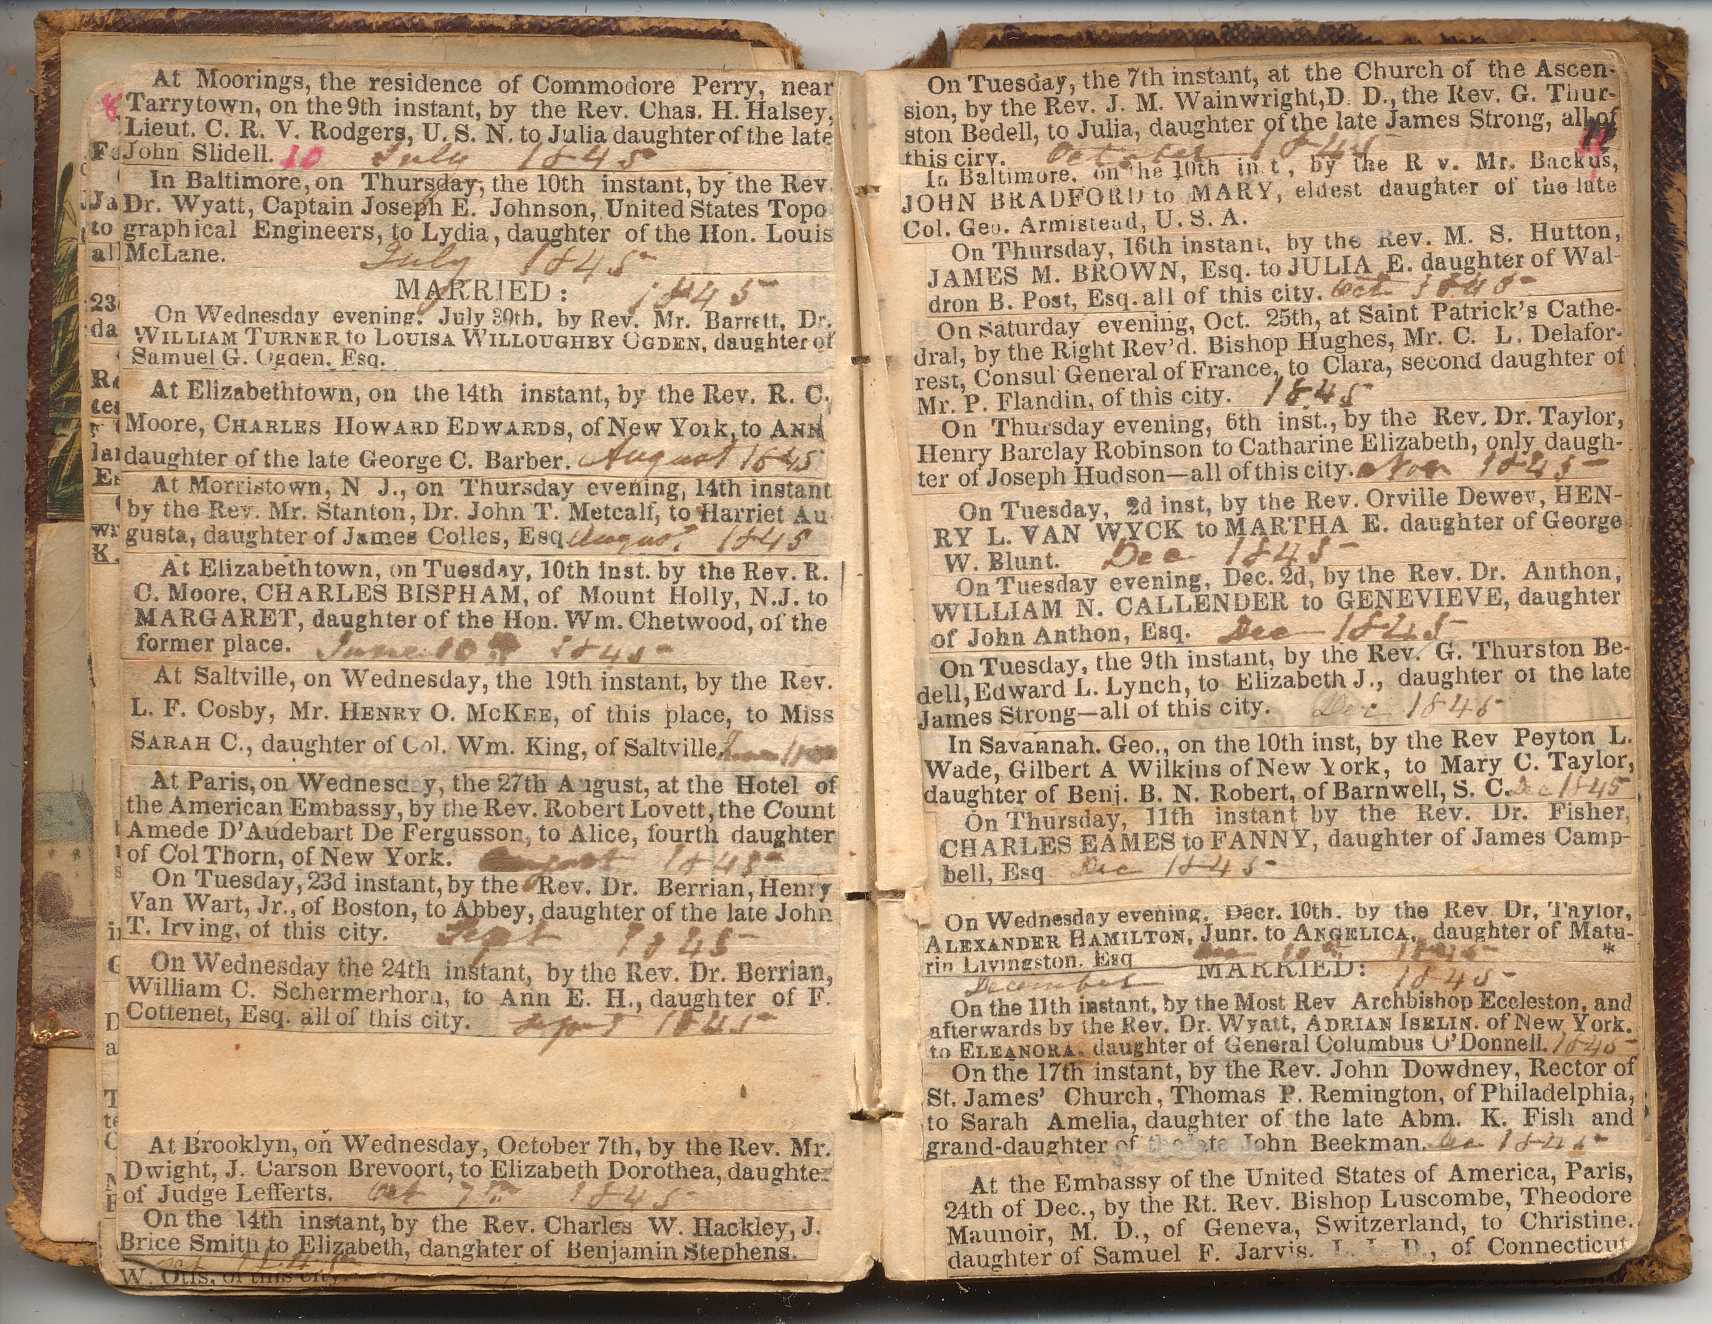 At Moorings, the residence of Commodore Perry, near
Tarrytown, on the 9th instant, by the Rev. Chas. H. Halsey,
Lieut. C. R. V. Rodgers, U. S. N. to Julia daughter of the late
John Slidell. 10 July 1845
In Baltimore, on Thursday, the 10th instant, by the Rev.
Dr. Wyatt, Captain Joseph E. Johnson, United States Topo
graphical Engineers, to Lydia, daughter of the Hon. Louis
McLane. July 1845
MARRIED: 1845
On Wednesday evening, July 30th, by Rev. Mr. Barrett, Dr.
WILLIAM TURNER to LOUISA WILLOUGHBY OGDEN, daughter of
Samuel G. Ogden, Esq.
At Elizabethtown, on the 14th instant, by the Rev. R. C.
Moore, CHARLES HOWARD EDWARDS, of New York, to ANN
daughter of the late George C. Barber. August 1845
At Morristown, N J., on Thursday evening, 14th instant
by the Rev. Mr. Stanton, Dr. John T. Metcalf, to Harriet Au
gusta, daughter of James Colles, Esq August 1845
At Elizabethtown, on Tuesday, 10th inst. by the Rev. R.
C. Moore, CHARLES BISPHAM, of Mount Holly, N.J. to
MARGARET, daughter of the Hon. Wm. Chetwood, of the
former place. June 10th 1845
At Saltville, on Wednesday, the 19th instant, by the Rev.
L. F. Cosby, Mr. HENRY O. MCKEE, of this place, to Miss
SARAH C., daughter of Col. Wm. King, of Saltville
At Paris, on Wednesday, the 27th August, at the Hotel of
the American Embassy, by the Rev. Robert Lovett, the Count
Amede D'Audebart De Fergusson, to Alice, fourth daughter
of Col Thorn, of New York. August 1845
On Tuesday, 23d instant, by the Rev. Dr. Berrian, Henry
Van Wart, Jr., of Boston, to Abbey, daughter of the late John
T. Irving, of this city. Sept 1845
On Wednesday the 24th instant, by the Rev. Dr. Berrian,
William C. Schermerhorn, to Ann E. H., daughter of F.
Cottenet, Esq. all of this city. Sept 1845
At Brooklyn, on Wednesday, October 7th, by the Rev. Mr.
Dwight, J. Carson Brevoort, to Elizabeth Dorothea, daughter
of Judge Lefferts. Oct 7th 1845
On the 14th instant, by the Rev. Charles W. Hackley, J.
Brice Smith to Elizabeth, daughter of Benjamin Stephens.
W. Otis, of this city.
On Tuesday, the 7th instant, at the Church of the Ascen-
sion, by the Rev. J. M. Wainwright, D. D., the Rev. G. Thur-
ston Bedell, to Julia, daughter of the late James Strong, all of
this city. October 1845
In Baltimore, on the 10th inst, by the Rev. Mr. Backus,
JOHN BRADFORD to MARY, eldest daughter of the late
Col. Geo. Armistead, U. S. A.
On Thursday, 16th instant, by the Rev. M. S. Hutton,
JAMES M. BROWN, Esq. to JULIA E. daughter of Wal-
dron B. Post, Esq. all of this city. Oct 1845
On Saturday evening, Oct. 25th, at Saint Patrick's Cathe-
dral, by the Right Rev'd. Bishop Hughes, Mr. C. L. Delafor-
rest, Consul General of France, to Clara, second daughter of
Mr. P. Flandin, of this city. 1845
On Thursday evening, 6th inst., by the Rev. Dr. Taylor,
Henry Barclay Robinson to Catharine Elizabeth, only daugh-
ter of Joseph Hudson—all of this city. Nov 1845
On Tuesday, 2d inst, by the Rev. Orville Dewey, HEN-
RY L. VAN WYCK to MARTHA E. daughter of George
W. Blunt. Dec 1845
On Tuesday evening, Dec. 2d, by the Rev. Dr. Anthon,
WILLIAM N. CALLENDER to GENEVIEVE, daughter
of John Anthon, Esq. Dec 1845
On Tuesday, the 9th instant, by the Rev. G. Thurston Be-
dell, Edward L. Lynch, to Elizabeth J., daughter of the late
James Strong—all of this city. Dec 1845
In Savannah. Geo., on the 10th inst, by the Rev Peyton L.
Wade, Gilbert A Wilkins of New York, to Mary C. Taylor,
daughter of Benj. B. N. Robert, of Barnwell, S. C. Dec 1845
On Thursday, 11th instant by the Rev. Dr. Fisher,
CHARLES EAMES to FANNY, daughter of James Camp-
bell, Esq Dec 1845
On Wednesday evening, Decr. 10th, by the Rev Dr, Taylor,
ALEXANDER HAMILTON, Junr. to ANGELICA, daughter of Matu-
rin Livingston, Esq 10th 1845 *
MARRIED:
December 1845
On the 11th instant, by the Most Rev Archbishop Eccleston, and
afterwards by the Rev. Dr. Wyatt, ADRIAN ISELIN, of New York.
to ELEANORA, daughter of General Columbus O'Donnell. 1845
On the 17th instant, by the Rev. John Dowdney, Rector of
St. James' Church, Thomas P. Remington, of Philadelphia,
to Sarah Amelia, daughter of the late Abm. K. Fish and
grand-daughter of the late John Beekman. Dec 1845
At the Embassy of the United States of America, Paris,
24th of Dec., by the Rt. Rev. Bishop Luscombe, Theodore
Maunoir, M. D., of Geneva, Switzerland, to Christine.
daughter of Samuel F. Jarvis. L. L D., of Connecticut